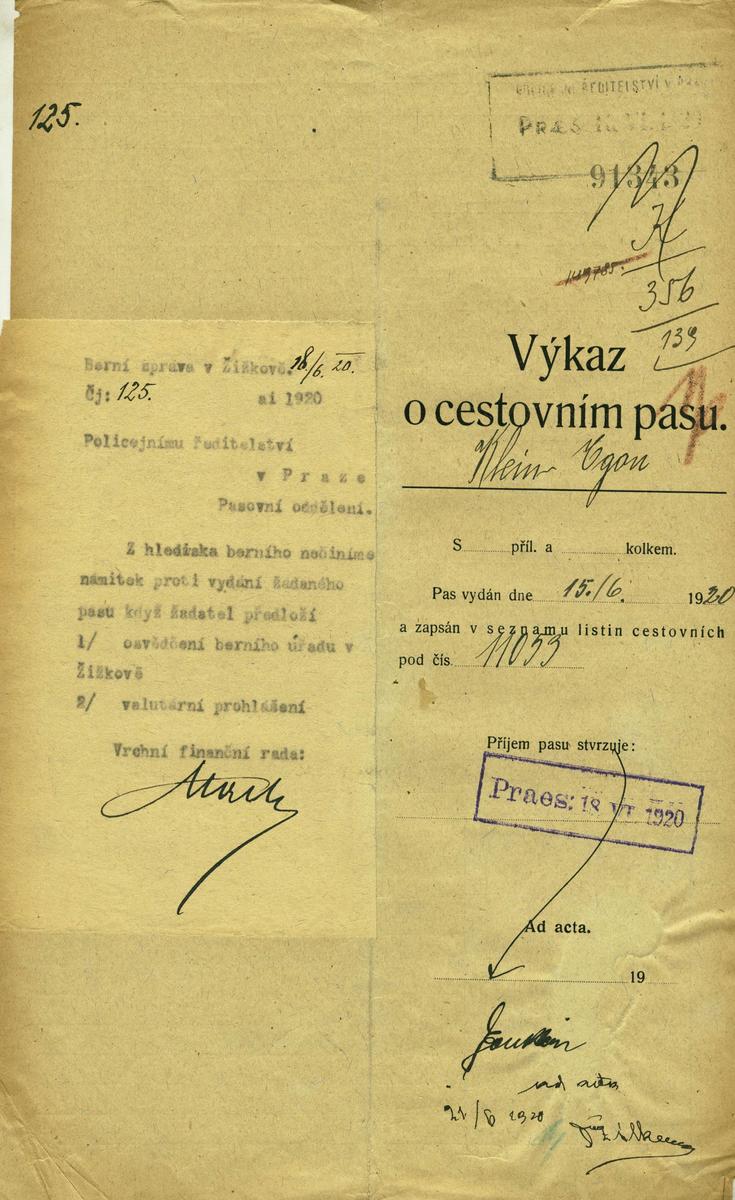 125.
POLICEJNÍ ŘEDITELSTVÍ V
Præs.
91343
K
356
139
Výkaz
o cestovním pasu.
Klein Egon
S příl. a kolkem.
Pas vydán dne 15./6. 1920
a zapsán v seznamu listin cestovních
pod čís. 11053
Příjem pasu stvrzuje:
Praes: 18 VI 1920
Ad acta.
19
ad acta
21/6 1920
Berní správa v Žižkově. 18/6. 20.
Čj: 125. ai 1920
Policejnímu ředitelství
v Praze
Pasovní oddělení.
Z hlediska berního nečiníme
námitek proti vydání žádaného
pasu když žadatel předloží
1/ osvědčení berního úřadu v
Žižkově
2/ valutární prohlášení
Vrchní finanční rada: